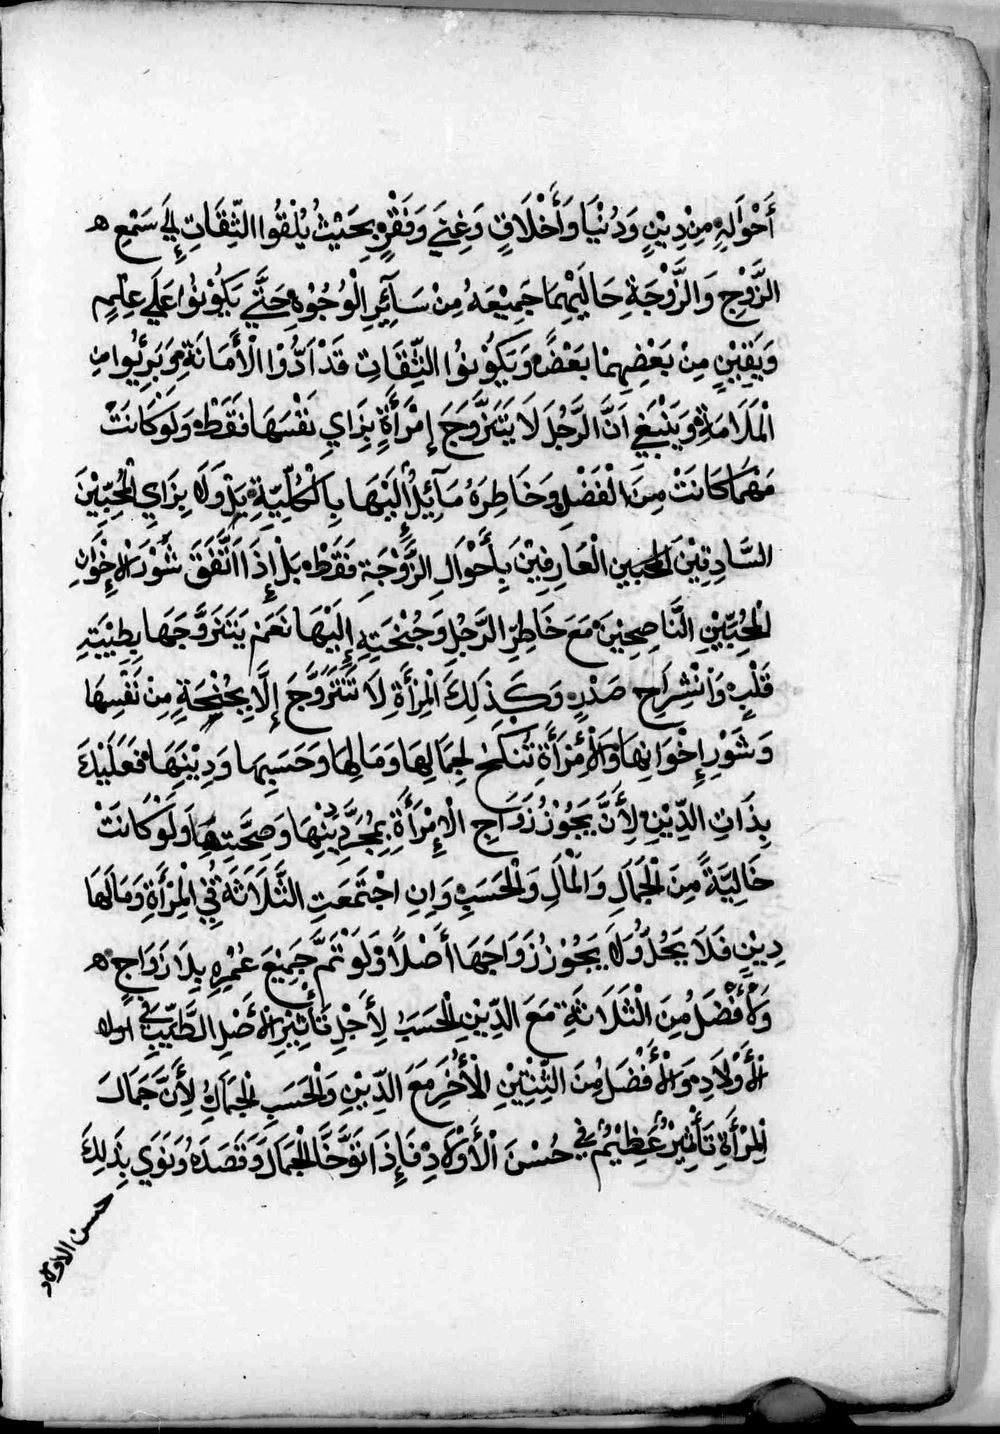 أَحْوَالِهِ مِنْ دِيْنٍ وَدُنْيَا وَأَخْلَاقٍ وَغِنَي وَفَقْرٍ بِحَيْثُ يُلْقُوا الثِّقَاتِ إِلَي سَمْعِ ه
الزَّوْجِ وَالزَّوْجَةِ حَالَيْهِمَا جَمِيْعَهُ مِنْ سَآئِرِ الْوُجُوْهِ حَتَّي يَكُوْنُوا عَلَي عِلْمٍ
وَيَقِيْنٍ مِنْ بَعْضِهِمَا بَعْضًا وَيَكُوْنُوا الثِّقَاتِ قَدْ اَدُّوْا الْأَمَانَةِ وَبَرِئُيوا مِن
الْمَلَامَةِ وَيَنْبَغِي اَنَّ الرَّجُلَ لَا يَتَزَوَّجَ إِمْرَأَةٍ بِرَايِ نَفْسَهَا فَقَطْ وَلَوْ كَانَتْ
مَهْمَا كَانَتْ مِنَ الْفَضْلِ وَخَاطِرَهُ مَآئِلٌ إِلَيْهَا بِالْكُلِّيَّةِ بَلْ وَلَا بِرَايِ الْمُحِبِّيْنَ
السَّادِقِيْنَ المحبين الْعَارِفِيْنَ بِأَحْوَالِ الزَّوْجَةِ فَقَطْ بَلْ إِذَا اتَّفَقَ شَوْرَ الْإِخْوَانِ
الْمُحِبِّيْنِ النَّاصِحِيْنَ مَعَ خَاطِرِ الرَّجُلِ وَجُنْحَتِهِ إِلَيْهَا نَعَمْ يَتَزَوَّجَهَا بِطِيْبَةِ
قَلْبٍ وَانْشِرَاحِ صَدْرٍ وَكَذَلِكَ الْمِرْأَةِ لَا تَتَزَوَّجَ إِلَّا بِجُنْحَةٍ مِنْ نَفْسِهَا
وَشَوْرِ إِخْوَانِهَا وَالْأِمْرَأَةِ تُنْكَحُ لِجَمَالِهَا وَمَالِهَا وَحَسَبِهَا وَدِيْنِهَا فَعَلَيْكَ
بِذَاتِ الدِّيْنِ لِأَنَّ يَجُوْزُ زَوَاجِ الْإِمْرَأَةِ بِمُجَرَّدِ دِيْنِهَا وَصِحَّتِهَا وَلَوْ كَانَتْ
خَالِيَّةً مِنَ الْجَمَالِ وَالْمَالِ وَالْحَسَبِ وَاِنِ اجْتَمَعَتِ الثَّلَاثَةُ فِي الْمِرْأَةِ وَمَا لَهَا
دِيْنٍ فَلَا يَحُلُّ وَلَا يَجُوْزُ زَوَاجَهَا أَصْلًا وَلَوْ تَمَّ جَمِيْعَ عُمْرِهِ بِلَا زَوَاجٍ ه
وَالْأَفْضَلُ مِنَ الْثَلَاثَةِ مَعَ الدِّيْنِ الْحَسَبُ لِأَجْلِ تَأْثِيْرِ الْأَصْلِ الطَّيِّبِ فِي اولا
الْأَوْلَادِ وَالْأَفْضَلُ مِنَ الثِّنْتِيْنِ الْأُخْرِ مَعَ الدِّيْنِ وَالْحَسَبِ الْجَمَالُ لِأَنَّ جَمَالَ
الْمِرْأَةِ تَأْثِيْرٌ عَظِيْمٌ فِي حُسْنَ الْأَوْلَادِ فَإِذَا تَوَخَّا الْجَمَالَ وَقَصَدَهُ وَنَوَي بِذَلِكَ
حسن الاولاد